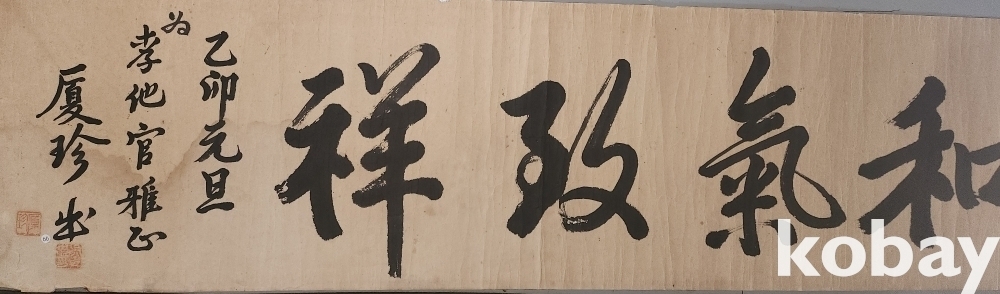 和氣致祥
乙卯元旦
為
孝他官雅正
厦珍出
kobay